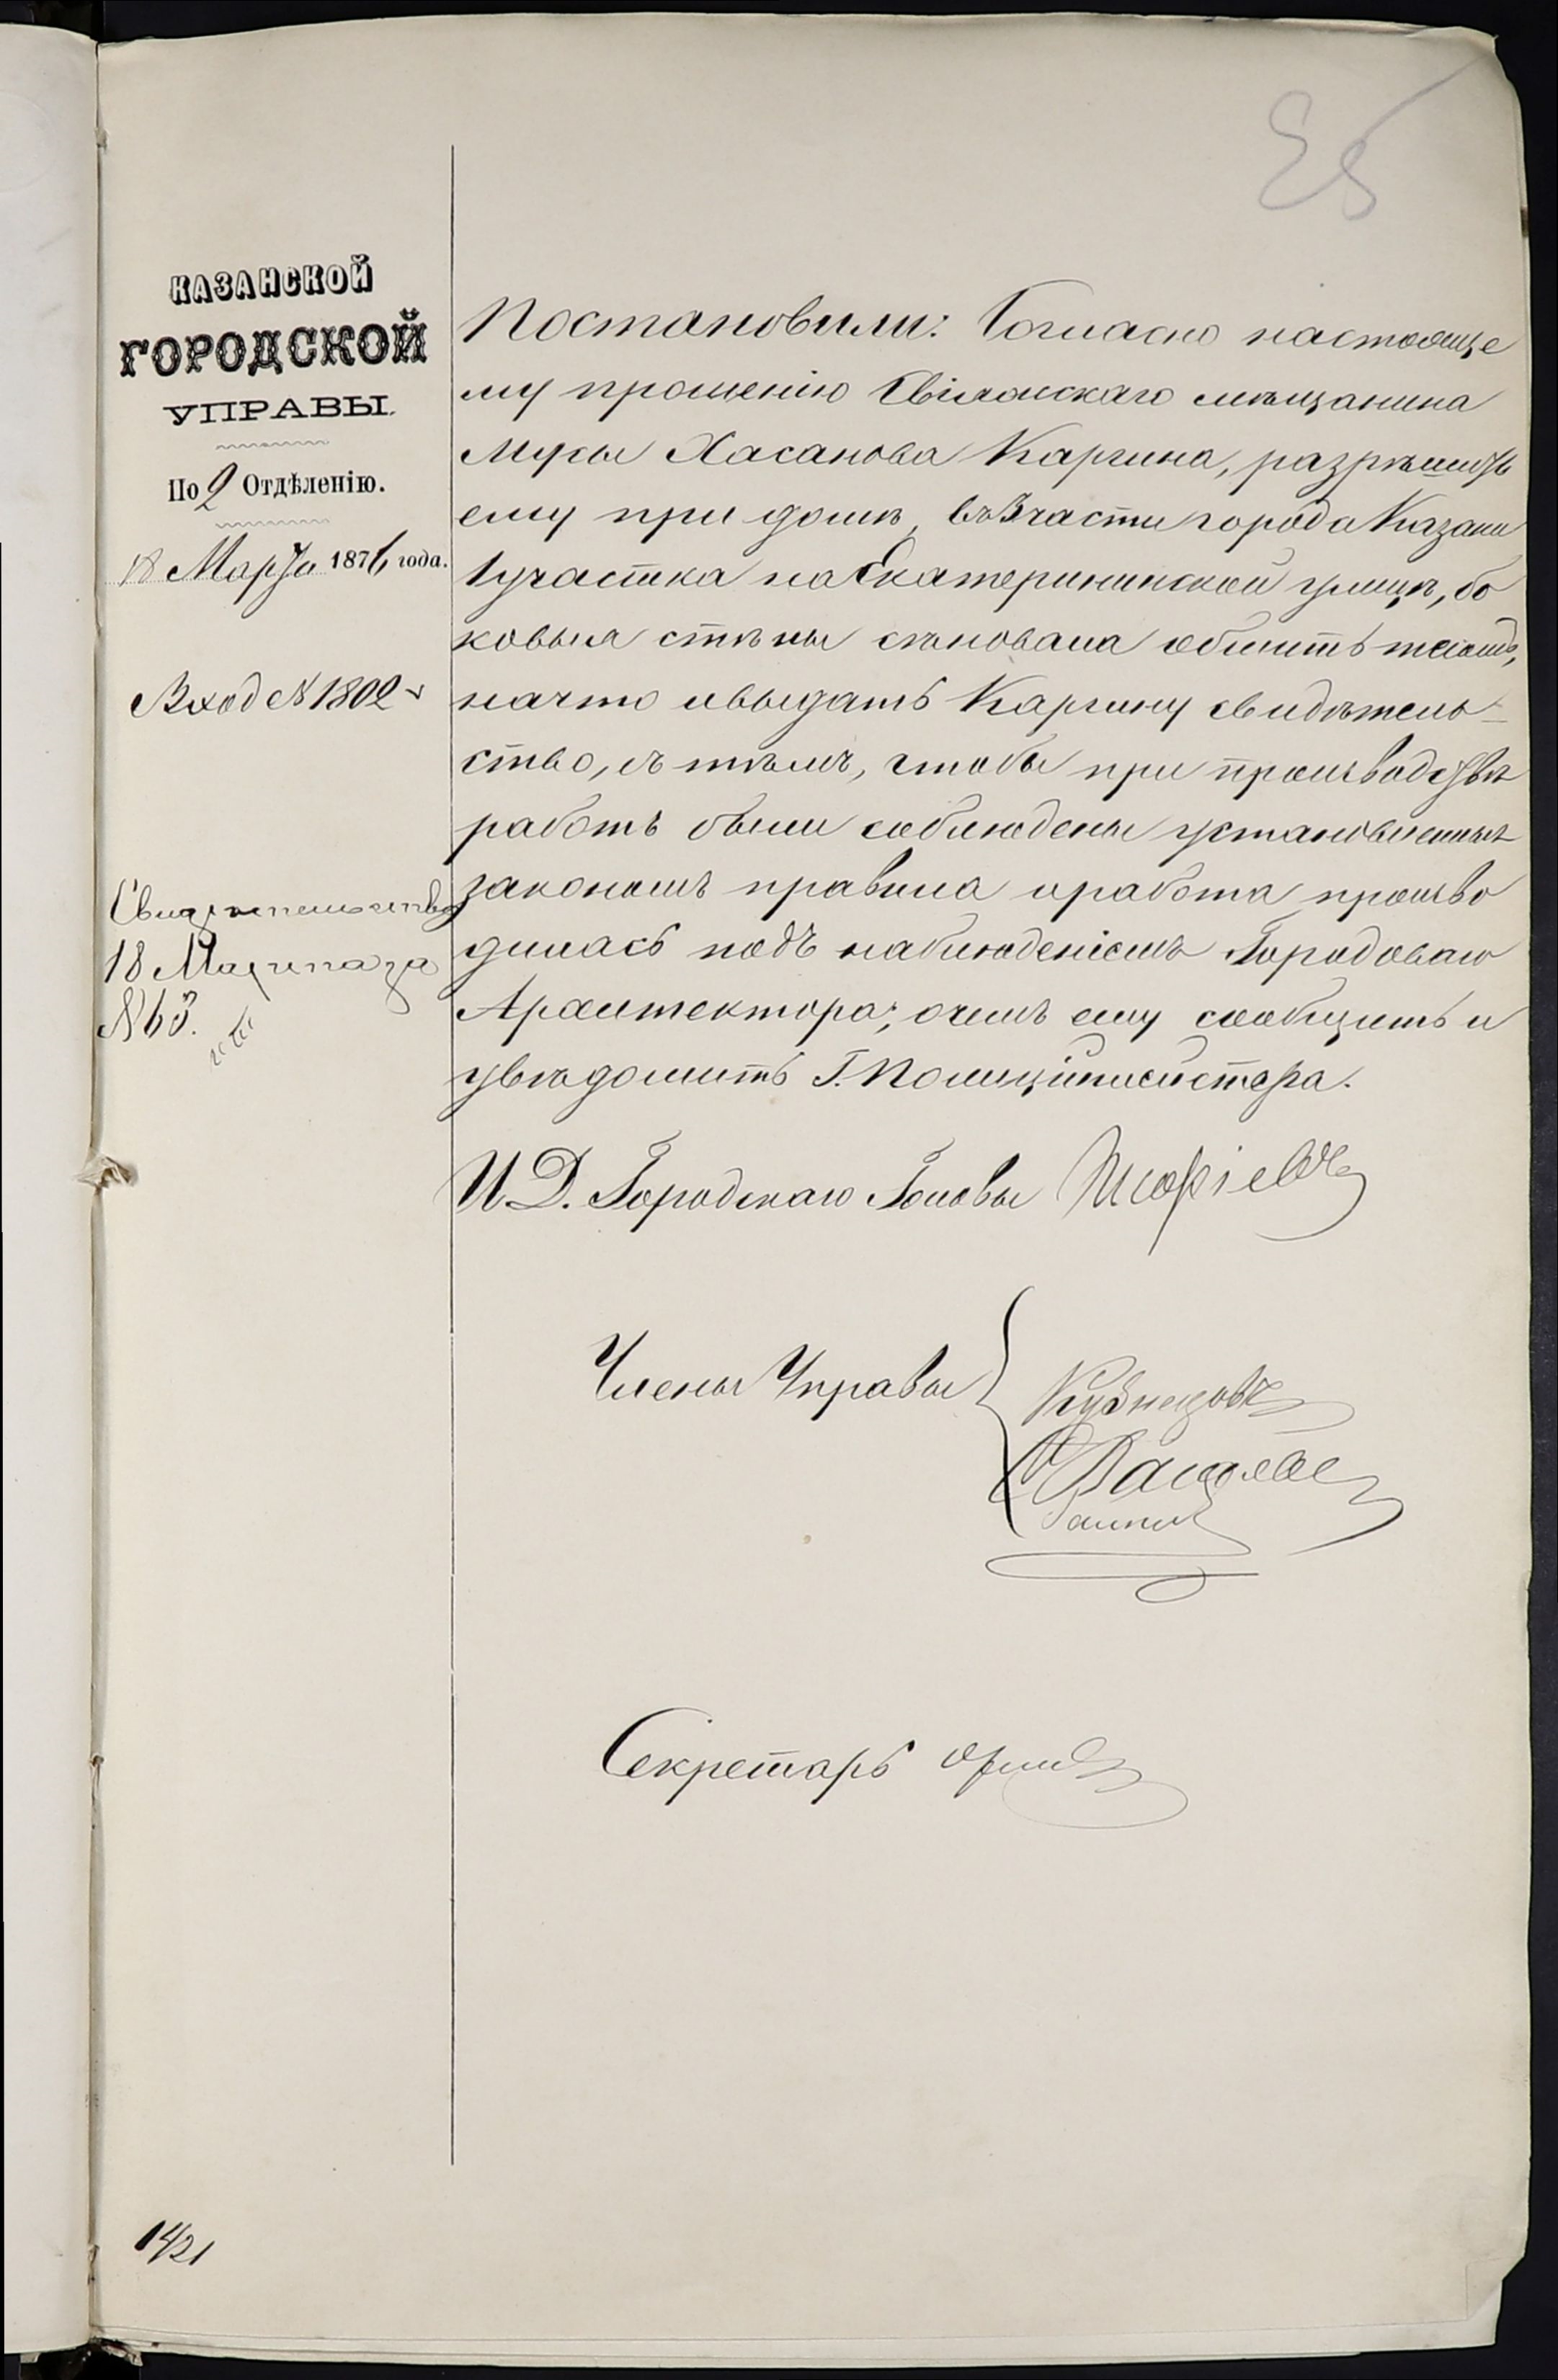 85
КАЗАНСКОЙ
ГОРОДСКОЙ
УПРАВЫ.
По 2 Отдѣленію.
18 Марта 1876 года.
Вход № 1802
Свидѣтельство
18 Марта за
№ 63.
Постановили: Согласно настояще
му прошенію Свіяжскаго мѣщанина
Мусы Хасанова Каргина, разрѣшить
ему при домѣ, въ 3 части города Казани
1 участка на Екатерининской улицѣ, бо
ковыя стѣны сѣновала обшить тесомъ,
на что и выдать Каргину свидѣтель-
ство, съ тѣмъ, чтобы при производствѣ
работъ были соблюдены установленныя
закономъ правила и работа произво
дилась подъ наблюденіемъ Городоваго
Архитектора; о чемъ ему сообщить и
увѣдомить Г. Полиціймейстера.
И.Д. Городскаго Головы
Члены Управы
Кузнецовъ
Секретарь
14/21